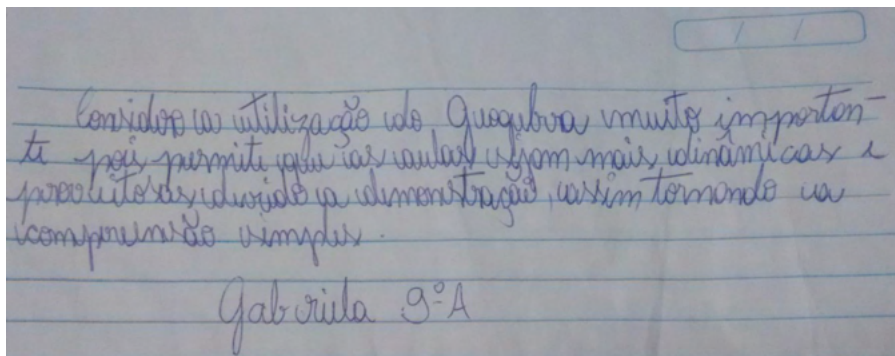 Considero a utilização do Geogebra muito importan-
te pois permite que as aulas sejam mais dinâmicas e
proveitosas devido a demonstração, assim tornando a
compreensão simples.
Gabriela 9º A